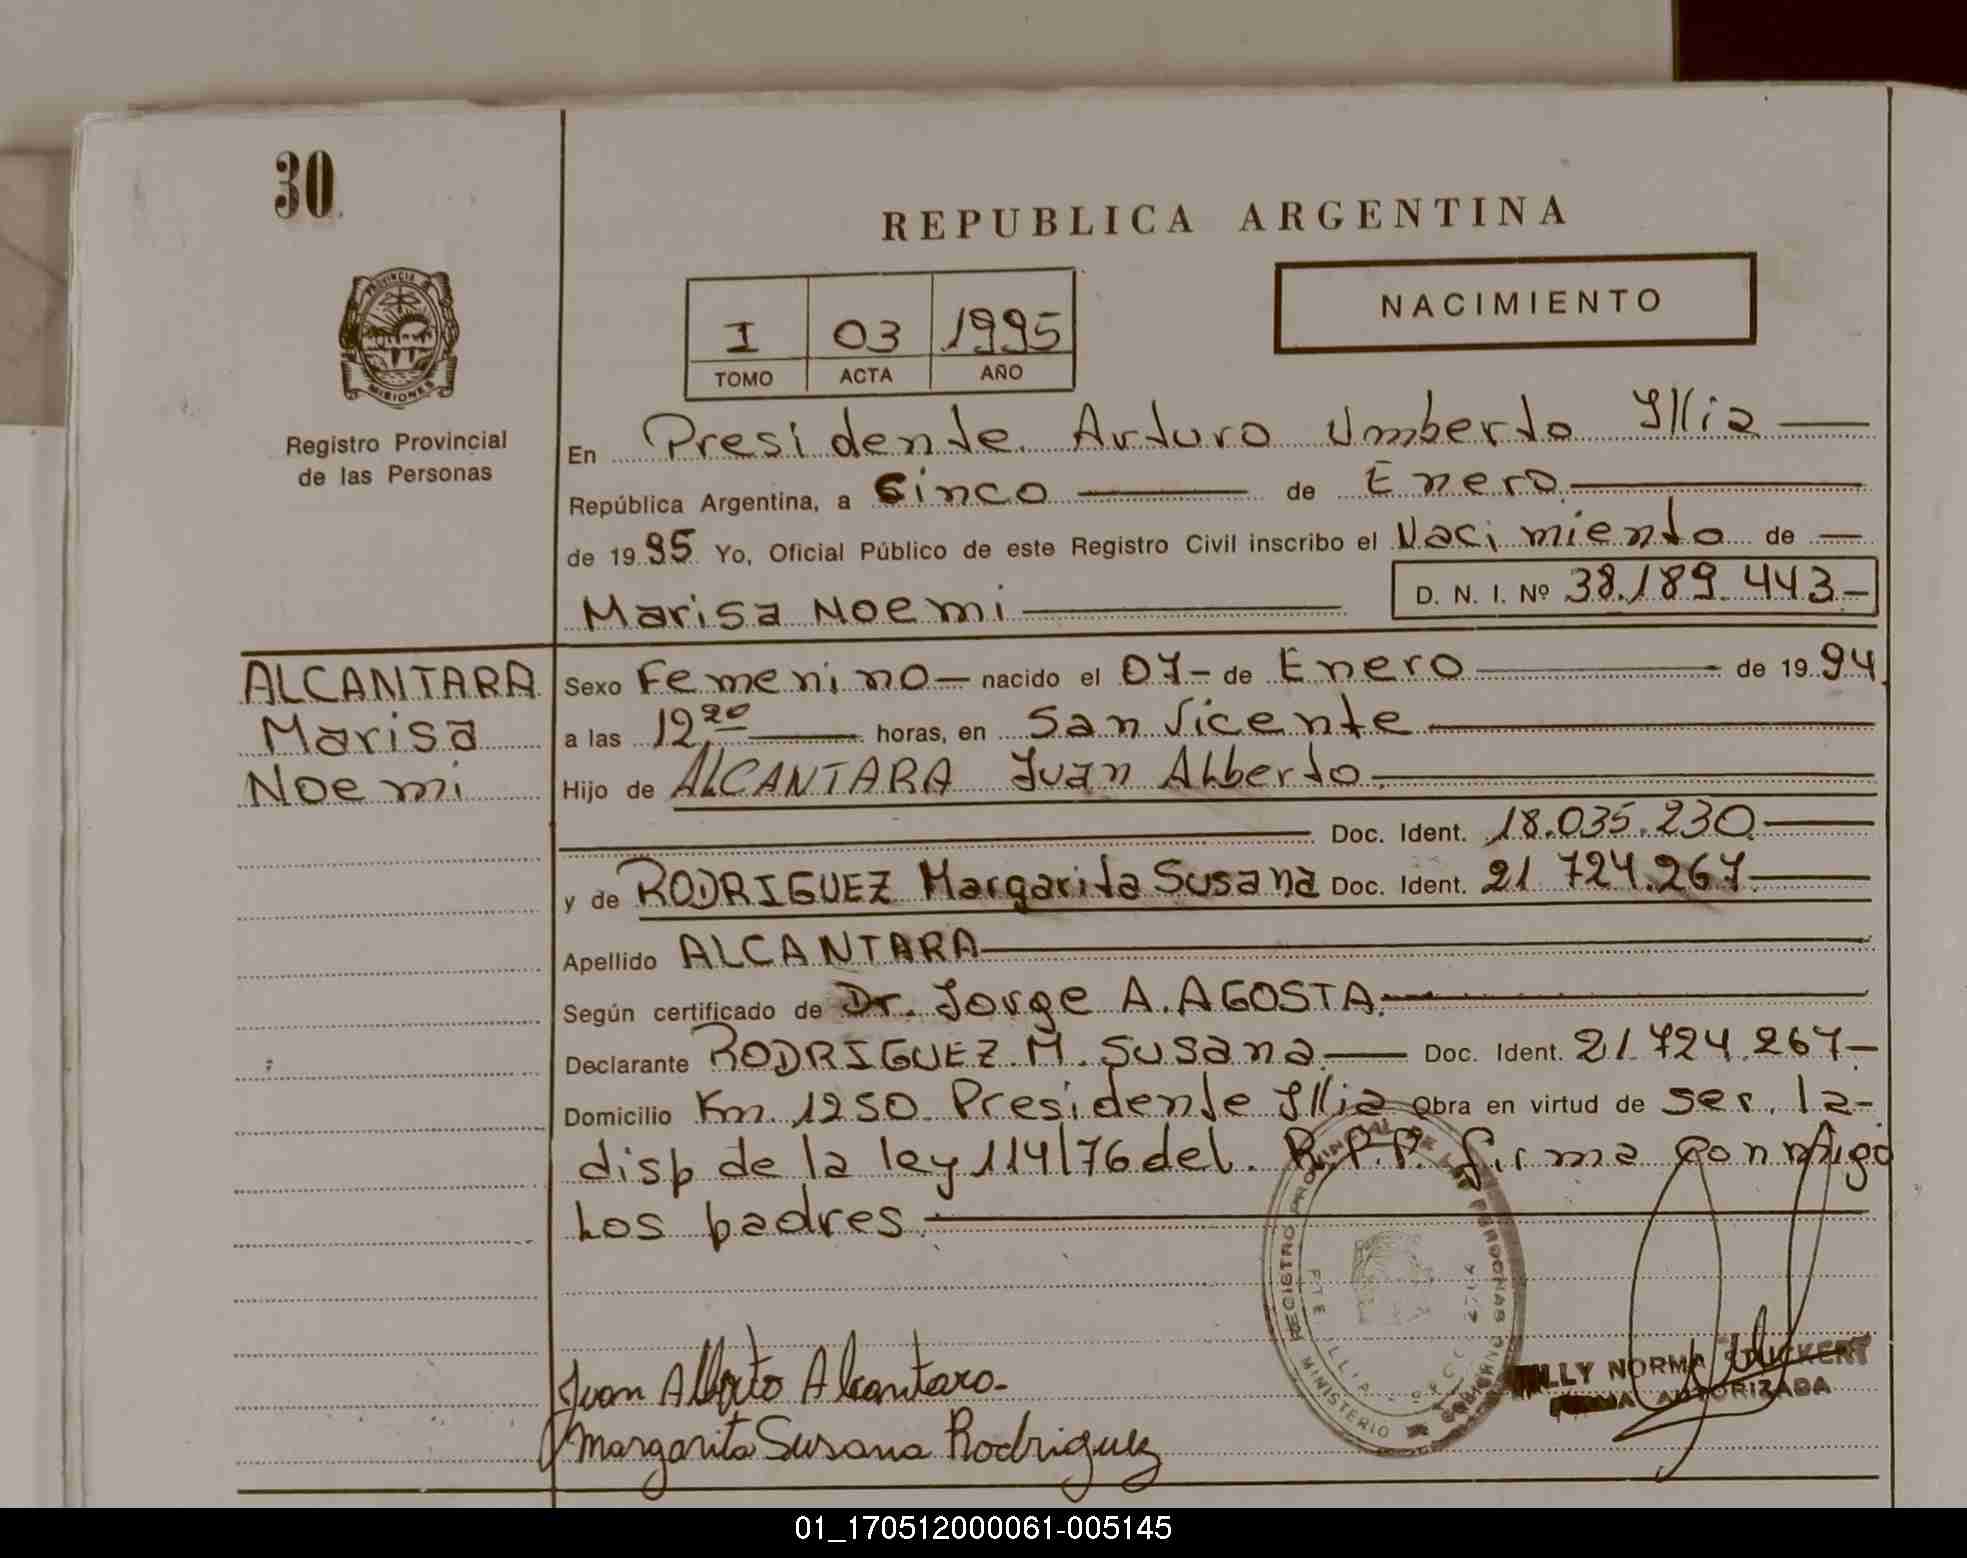 30
REPUBLICA ARGENTINA
PROVINCIA D
MISIONES
Registro Provincial
de las Personas
I 03 1995
TOMO ACTA AÑO
NACIMIENTO
En Presidente Arturo Umberto Illia
República Argentina, a Cinco de Enero
de 1995 Yo, Oficial Público de este Registro Civil inscribo el Nacimiento de
Marisa Noemi D. N. I. Nº 38.189.443-
ALCANTARA
Marisa
Noemi
Sexo Femenino nacido el 07- de Enero de 1994
a las 12,20 horas, en San Vicente
Hijo de ALCANTARA Juan Alberto
Doc. Ident. 18.035.230
y de RODRIGUEZ Margarita Susana Doc. Ident. 21 724.267
Apellido ALCANTARA
Según certificado de Dr. Jorge A. AGOSTA.
Declarante RODRIGUEZ M. Susana Doc. Ident. 21.724.267-
Domicilio Km. 1250. Presidente Illia Obra en virtud de ser. la-
disp de la ley 114/76 del. R.P.P. firma conmigo
Los padres
REGISTRO PROVINCIAL DE LAS PERSONAS
MINISTERIO GOBIERNO
PTE ILLIA
Juan Alberto Alcantara
Margarita Susana Rodriguez
LLY NORMA STUCKERT
FIRMA AUTORIZADA
01_170512000061-005145